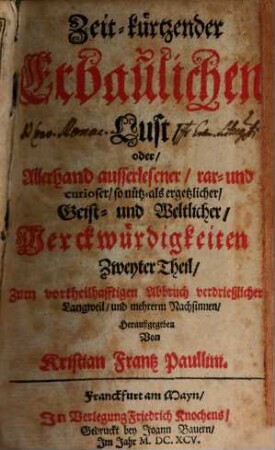 Zeit-kürtzender
Erbaulichen
Lust
oder/
Allerhand ausserlesener/ rar- und
curioser/ so nütz- als ergetzlicher/
Geist- und Weltlicher/
Merckwürdigkeiten
Zweyter Theil/
Zum vortheilhafftigen Abbruch verdrießlicher
Langweil/ und mehrerm Nachsinnen/
Herausgegeben
Von
Kristian Frantz Paullini.
Franckfurt am Mayn/
In Verlegung Friedrich Knochens/
Gedruckt bey Joann Bauern/
Im Jahr M. DC. XCV.